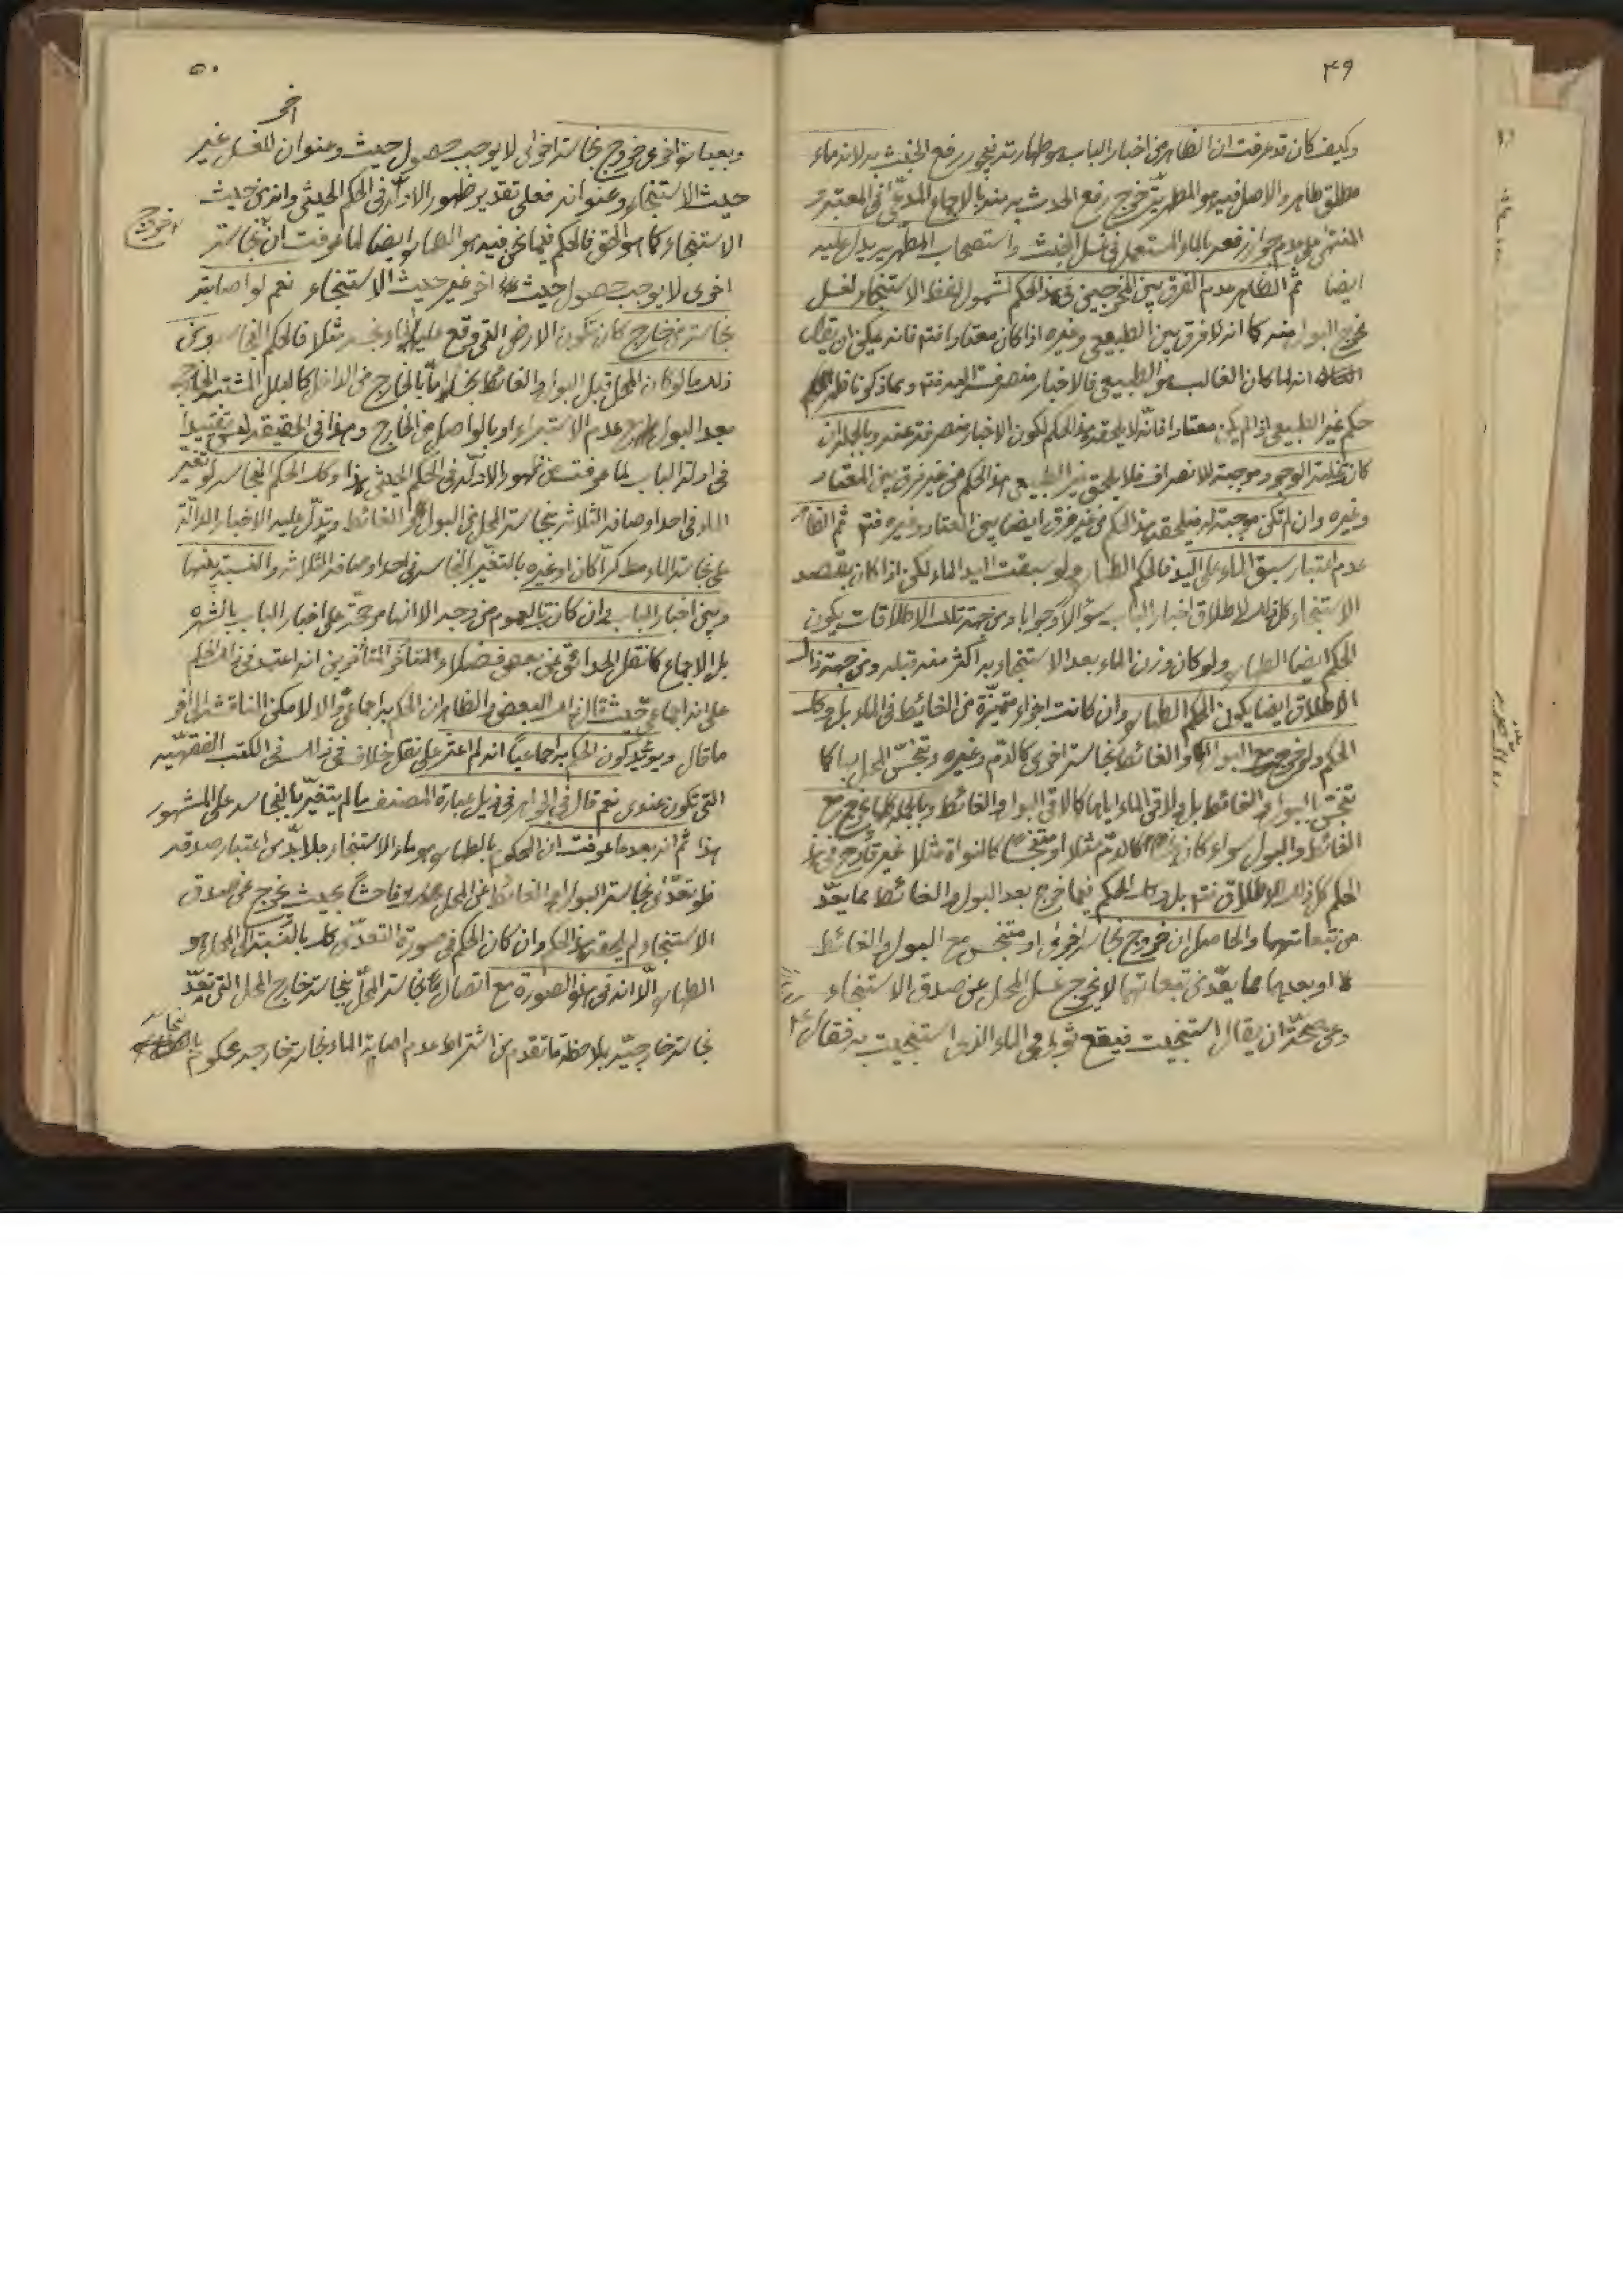 ٤٩
وكيف كان قد عرفت ان الظاهر من اخبار الباب هو طهارته فيجوز رفع الخبث به لانه ماء
مطلق طاهر والاصل فيه هو المطهرية خرج رفع الحدث به منه بالاجماع المدعى في المعتبر و
المنتهى على عدم جواز رفعه بالماء المستعمل في غسل الخبث واستصحاب المطهرية يدل عليه
ايضا ثم الظاهر عدم الفرق بين المخرجين في هذا الحكم لشمول لفظ الاستنجاء لغسل
مخرج البول منه كما انه لا فرق بين الطبيعي وغيره اذا كان معتادا فتم فانه يمكن ان يقال
انه لما كان الغالب هو الطبيعي فالاخبار منصرفة اليه فتم ومما ذكرنا ظهر
حكم غير الطبيعي اذا لم يكن معتادا فانّه لا يلحقه هذا الحكم لكون الاخبار منصرفة عنه وبالجملة ان
كان غلبة الوجود موجبة للانصراف فلا يلحق غير الطبيعي هذا الحكم من غير فرق بين المعتاد
وغيره وان لم تكن موجبة له فيلحقه هذا الحكم من غير فرق ايضا بين المعتاد وغيره فتم ثم الظاهر
عدم اعتبار سبق الماء على اليد فالحكم الطهارة ولو سبقت اليد الماء لكن اذا كان بقصد
الاستنجاء كل ذلك لاطلاق اخبار الباب سؤالا وجوابا ومن جهة تلك الاطلاقات يكون
الحكم ايضا الطهارة ولو كان وزن الماء بعد الاستنجاء به اكثر منه قبله ومن جهة ذلك
الاطلاق ايضا يكون الحكم الطهارة وان كانت اجزاء متميّزة من الغائط في الماء بل وكذا
الحكم لو خرج مع البول او الغائط نجاسة اخرى كالدّم وغيره وتنجّس المحل بها كما
تنجّس بالبول او الغائط بل ولاقى الماء اياها كما لاقى البول او الغائط وبالجملة كلما يخرج مع
الغائط والبول سواء كان نجسا كالدّم مثلا او متنجّسا كالنواة مثلا غير قادح في هذا
الحكم كل ذلك للاطلاق فتم بل وكذا الحكم فيما خرج بعد البول والغائط مما يعدّ
من تبعاتهما والحاصل ان خروج نجاسة اخرى او متنجس مع البول والغائط
او بعدهما مما يعدّ من تبعاتهما لا يخرج غسل المحل عن صدق الاستنجاء
وعن صحّة ان يقال استنجيت فيقع ثوبي في الماء الذي استنجيت به فقال ع
٥٠
وبعبارة اخرى خروج نجاسة اخرى لا يوجب حصول حيث وعنوان للغسل غير
اخر
حيث الاستنجاء وعنوانه فعلى تقدير ظهور الادلّة في الحكم الحيثي وانه من حيث
الاستنجاء كما هو الحق فالحكم فيما نحن فيه هو الطهارة ايضا لما عرفت ان نجاسة
اخرى لا يوجب حصول حيث اخر غير حيث الاستنجاء نعم لو اصابته
نجاسة من خارج كان تكون الارض التي وقع عليها الماء نجسة مثلا فالحكم النجاسة ومن
ذلك ما لو كان المحل قبل البول او الغائط نجسا امّا بالخارج من الداخل كالبلل المشتبه الخارج
بعد البول مع عدم الاستبراء او بالواصل من الخارج وهذا في الحقيقة ليس تقييدا
في ادلة الباب لما عرفت من ظهور الادلّة في الحكم الحيثي هذا وكذا الحكم النجاسة لو تغيّر
الماء في احد اوصافه الثلاثة بنجاسة المحل من البول او الغائط ويدلّ عليه الاخبار الدالّة
على نجاسة الماء مط كرّا كان او غيره بالتغيّر بالنجاسة في احد اوصافه الثلاثة والنسبة بينها
وبين اخبار الباب وان كانت بالعموم من وجه الا انها مرجّحة على اخبار الباب بالشهرة
بل الاجماع كما نقل الحدائق عن بعض فضلاء متأخر المتأخرين انه اعتمد في ذلك الحكم
على انه اجماعيّ حيث قال ذلك البعض والظاهر ان الحكم به اجماعيّ والا لامكن المناقشة الى اخر
ما قال ويؤيّد كون الحكم به اجماعياً انه لم اعثر على نقل خلاف في ذلك في الكتب الفقهيّة
التي تكون عندي نعم قال في الجواهر في ذيل عبارة المصنف ما لم يتغيّر بالنجاسة على المشهور
هذا ثم انه بعد ما عرفت ان المحكوم بالطهارة هو ماء الاستنجاء فلا بدّ من اعتبار صدقه
فلو تعدّى نجاسة البول او الغائط عن المحل تعديا فاحشاً بحيث يخرج عن صدق
الاستنجاء لم يلحقه هذا الحكم وان كان الحكم في صورة التعدّي كذلك بالنسبة الى المحل هو
الطهارة الّا انه في هذه الصورة مع اتصال نجاسة المحلّ بنجاسة خارج المحل التي تعدّ
نجاسة خارجيّة بملاحظة ما تقدم من اشتراط عدم اصابة الماء نجاسة خارجية محكوم بالنجاسة